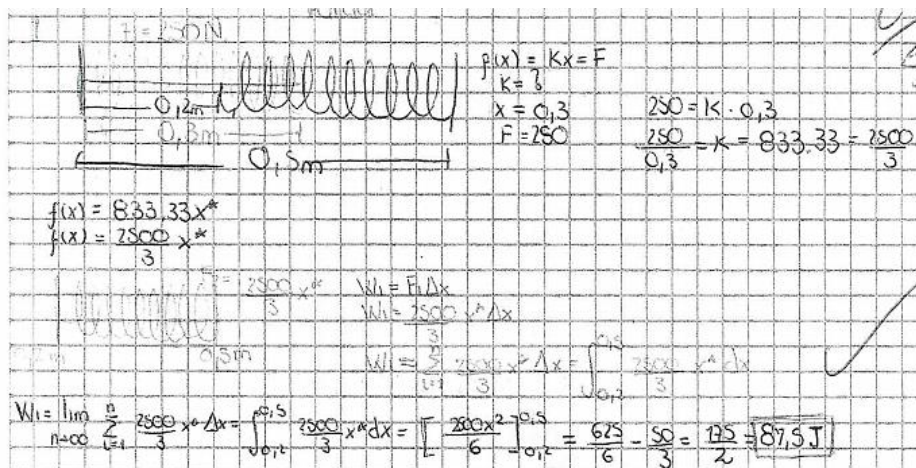 F1 = 250N
0,2m
0,3m
0,5m
f(x) = Kx = F
K = ?
x = 0,3
F = 250
250 = K · 0,3
250/0,3 = K = 833.33 = 2500/3
f(x) = 833,33x*
f(x) = 2500/3 x*
= 2500/3 x*
0,3m
W1 = F1Δx
W1 = 2500/3 x* Δx
W1 = Σ_{i=1}^{n} 2500/3 x* Δx = ∫_{0,2}^{0,5} 2500/3 x* dx
W1 = lim_{n→∞} Σ_{i=1}^{n} 2500/3 x* Δx = ∫_{0,2}^{0,5} 2500/3 x* dx = [2500x²/6]_{0,2}^{0,5} = 625/6 - 50/3 = 175/2 = 87,5 J